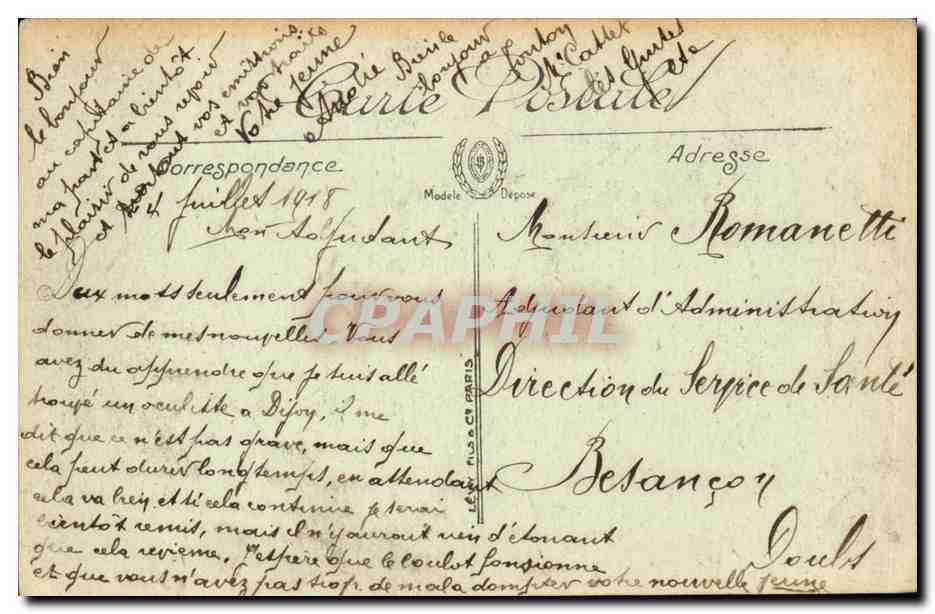 Carte Postale
Correspondance
Adresse
Modèle Déposé
LÉVY FILS & Cie PARIS
4 Juillet 1918
Mon Adjudant
Deux mots seulement pour vous
donner de mes nouvelles. Vous
avez du apprendre que je suis allé
trouvé un oculiste a Dijon, il me
dit que ce n'est pas grave, mais que
cela peut durer longtemps, en attendant
cela va bien et si cela continue je serai
bientôt remis, mais il n'y aurait rien d'étonant
que cela revienne. J'espère que le boulot fonsionne
et que vous n'avez pas trop de mal a dompter votre nouvelle jeune
Bien
le bonjour
au capitaine de
ma part et a bientôt
le plaisir de vous revoir
et surtout vos
et vos traits
Votre jeune
André Bien le
bonjour
a
Mr
des
Monsieur Romanetti
Adjudant d'Administration
Direction du Service de Santé
Besançon
Doubs
CPAPHIL